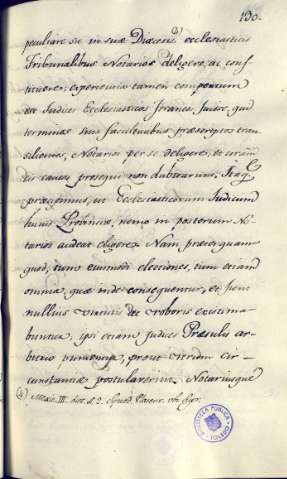 130.
peculiare sit in suæ Diœcesis ecclesiasticis
Tribunalibus Notarios deligere, ac con-
stituere; experientia tamen compertum
est Judices Ecclesiasticos franca fuisse, qui
terminos suis facultatibus præscriptos tran-
silientes, Notarios per se deligere, te
causa prosequi non dubitarunt. Itaq
præcipimus, ut Ecclesiasticorum Judicum
huius Provinciæ, nemo in posterum No-
tarios audeat eligere. Nam præterquam
quod, tum eiusmodi electiones, tum etiam
omnia, quæ inde consequentur, et
nullius roboris existima-
buntur, ipsi etiam Judices Præsulis ar-
bitrio punientur, prout cir-
cunstantiæ postulaverint. Notariusque
(4) Mexic. III. Synod.
BIBLIOTECA PUBLICA
TOLEDO